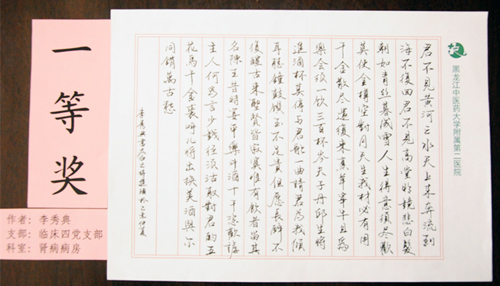 一等奖
作者：李秀典
支部：临床四党支部
科室：肾病病房
黑龙江中医药大学附属第二医院
君不见黄河之水天上来奔流到
海不復回君不见高堂明镜悲白髮
朝如青丝暮成雪人生得意须尽歡
莫使金樽空對月天生我材必有用
千金散尽還復来烹羊宰牛且為
樂會须一饮三百杯岑夫子丹邱生将
進酒杯莫停与君歌一曲請君為我倾
耳聽鐘鼓馔玉不足貴但愿長醉不
復醒古来聖賢皆寂寞唯有饮者留其
名陳王昔時宴平樂斗酒十千恣歡謔
主人何為言少钱径须沽取對君酌五
花馬千金裘呼儿将出换美酒與尔
同銷萬古愁
李秀典書李白之将進酒